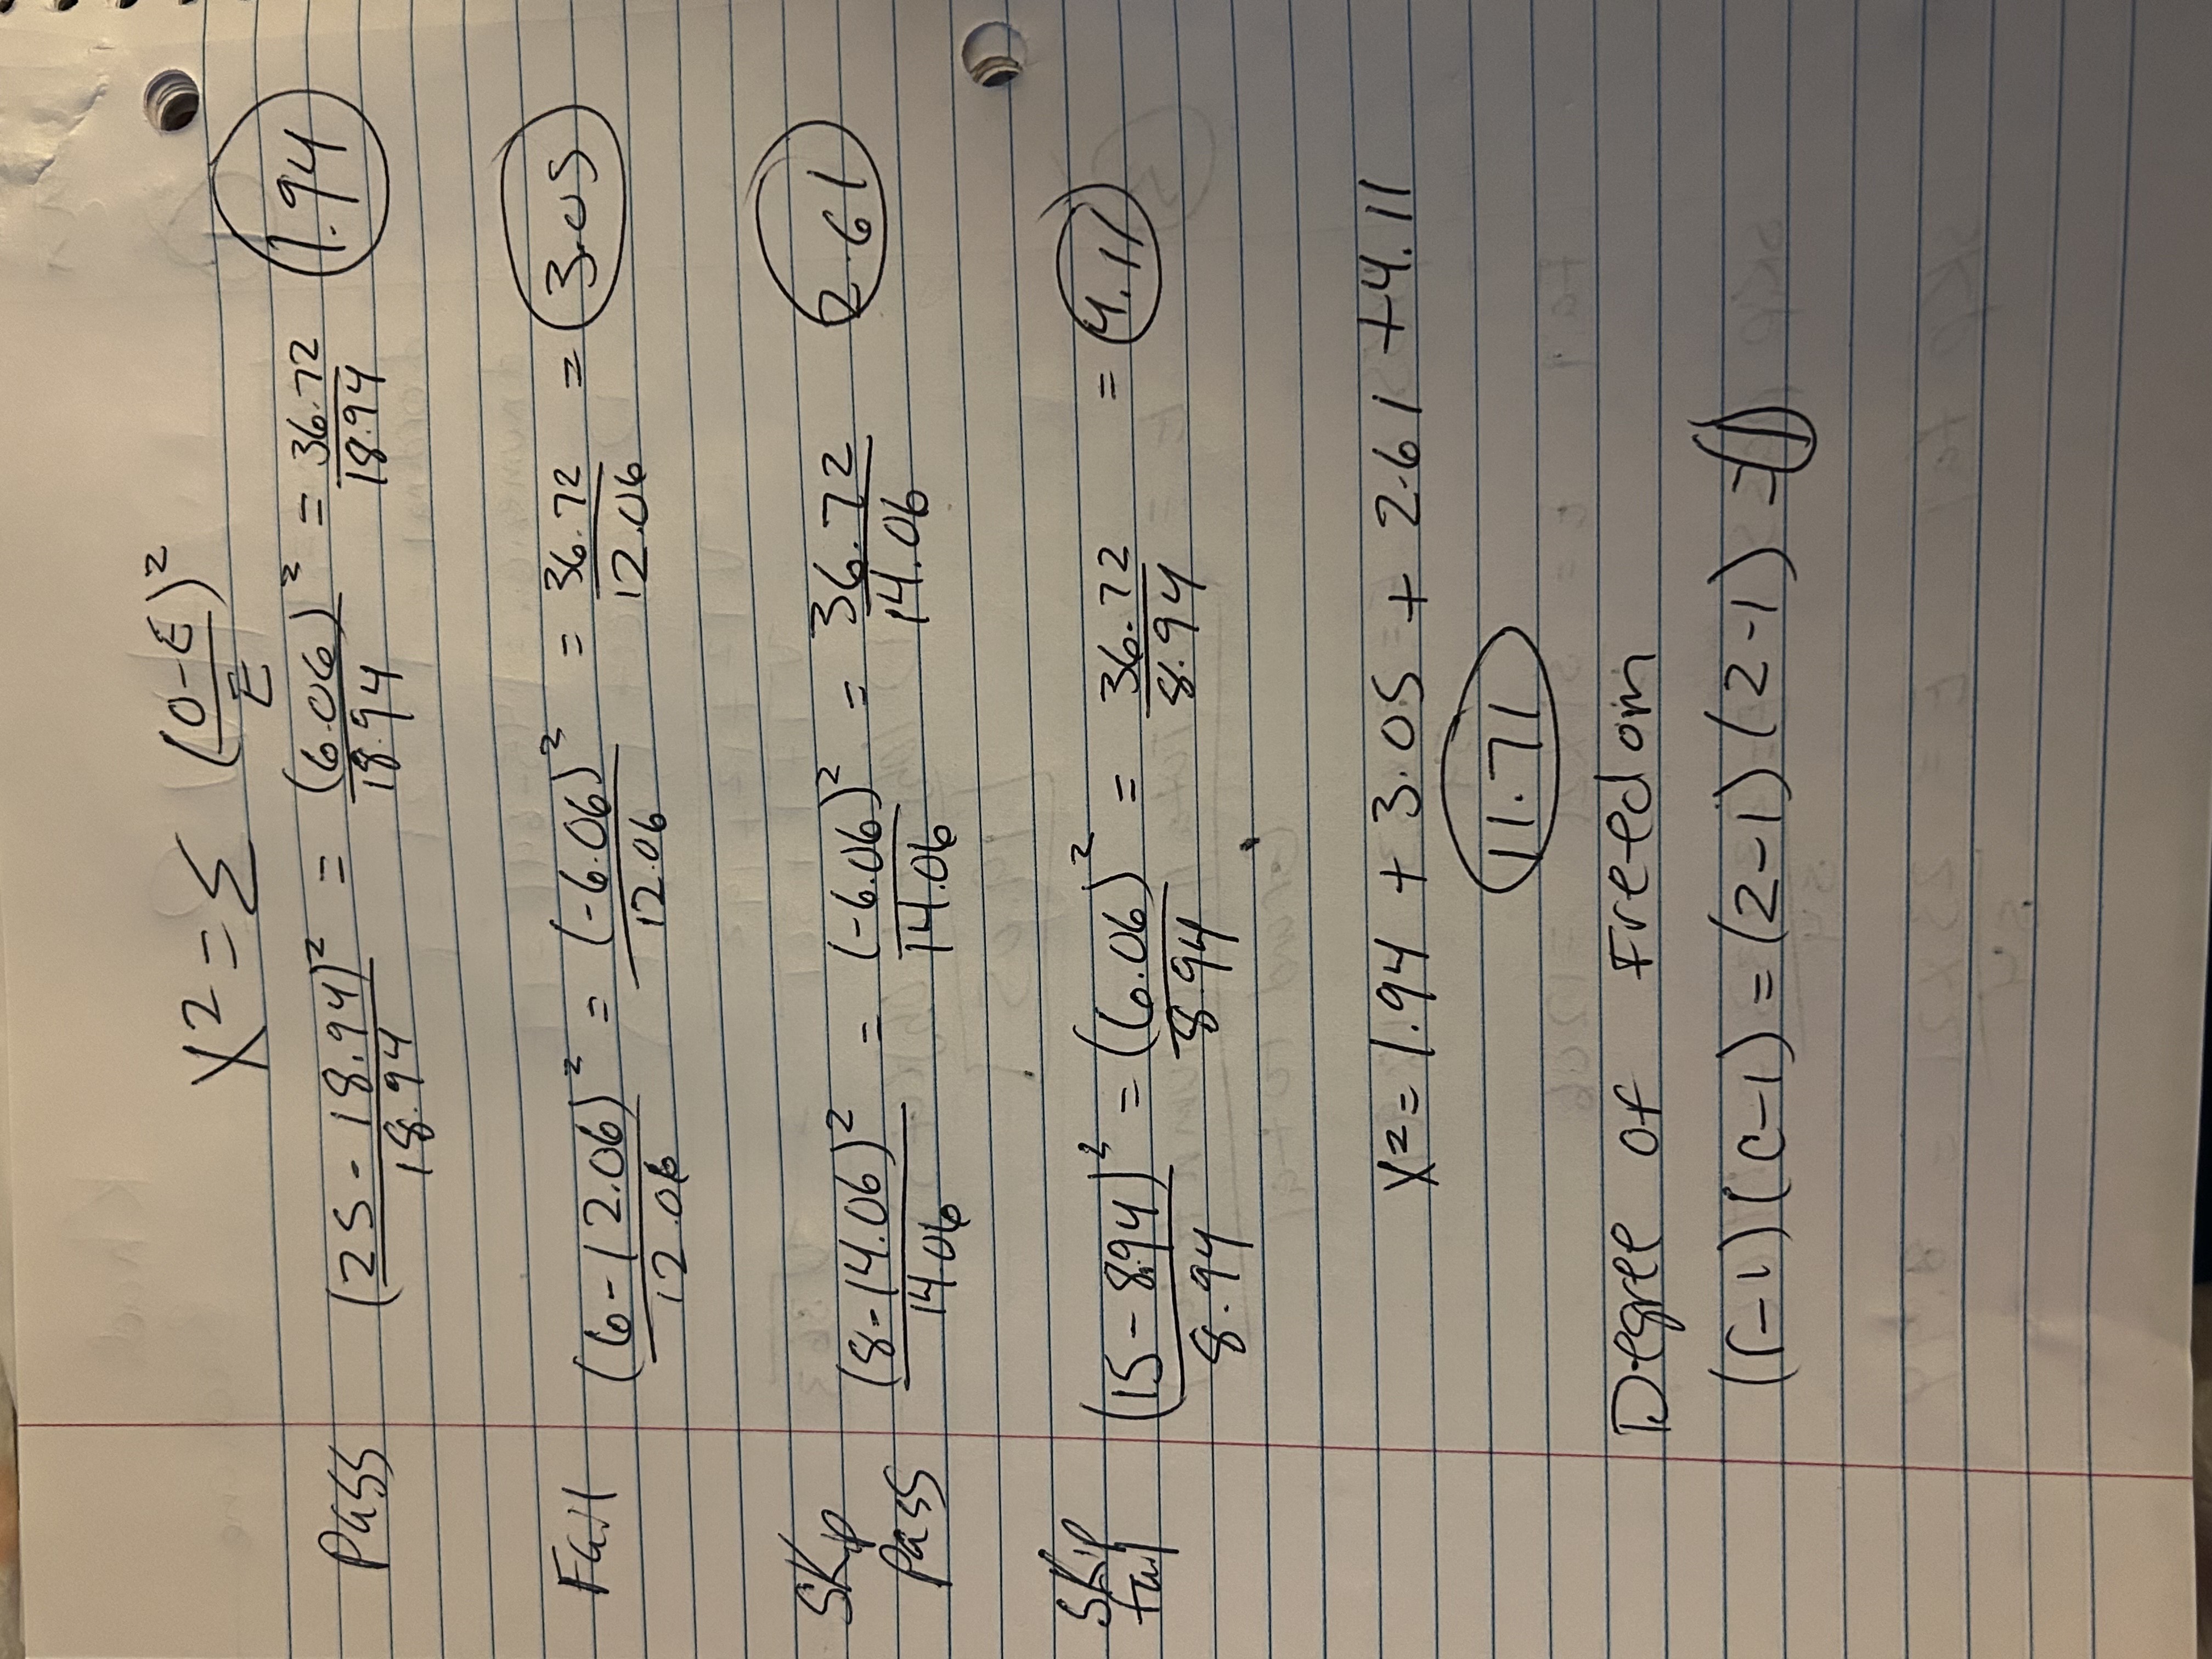 X² = Σ (O-E)²/E
Pass (25 - 18.94)²/18.94 = (6.06)²/18.94 = 36.72/18.94 1.94
Fail (6-12.06)²/12.06 = (-6.06)²/12.06 = 36.72/12.06 = 3.05
Skp
Pass (8-14.06)²/14.06 = (-6.06)²/14.06 = 36.72/14.06 2.61
Skip
fail (15-8.94)²/8.94 = (6.06)²/8.94 = 36.72/8.94 = 4.11
X² = 1.94 + 3.05 + 2.61 + 4.11
11.71
Degree of Freedom
(r-1)(c-1) = (2-1)(2-1) = 1